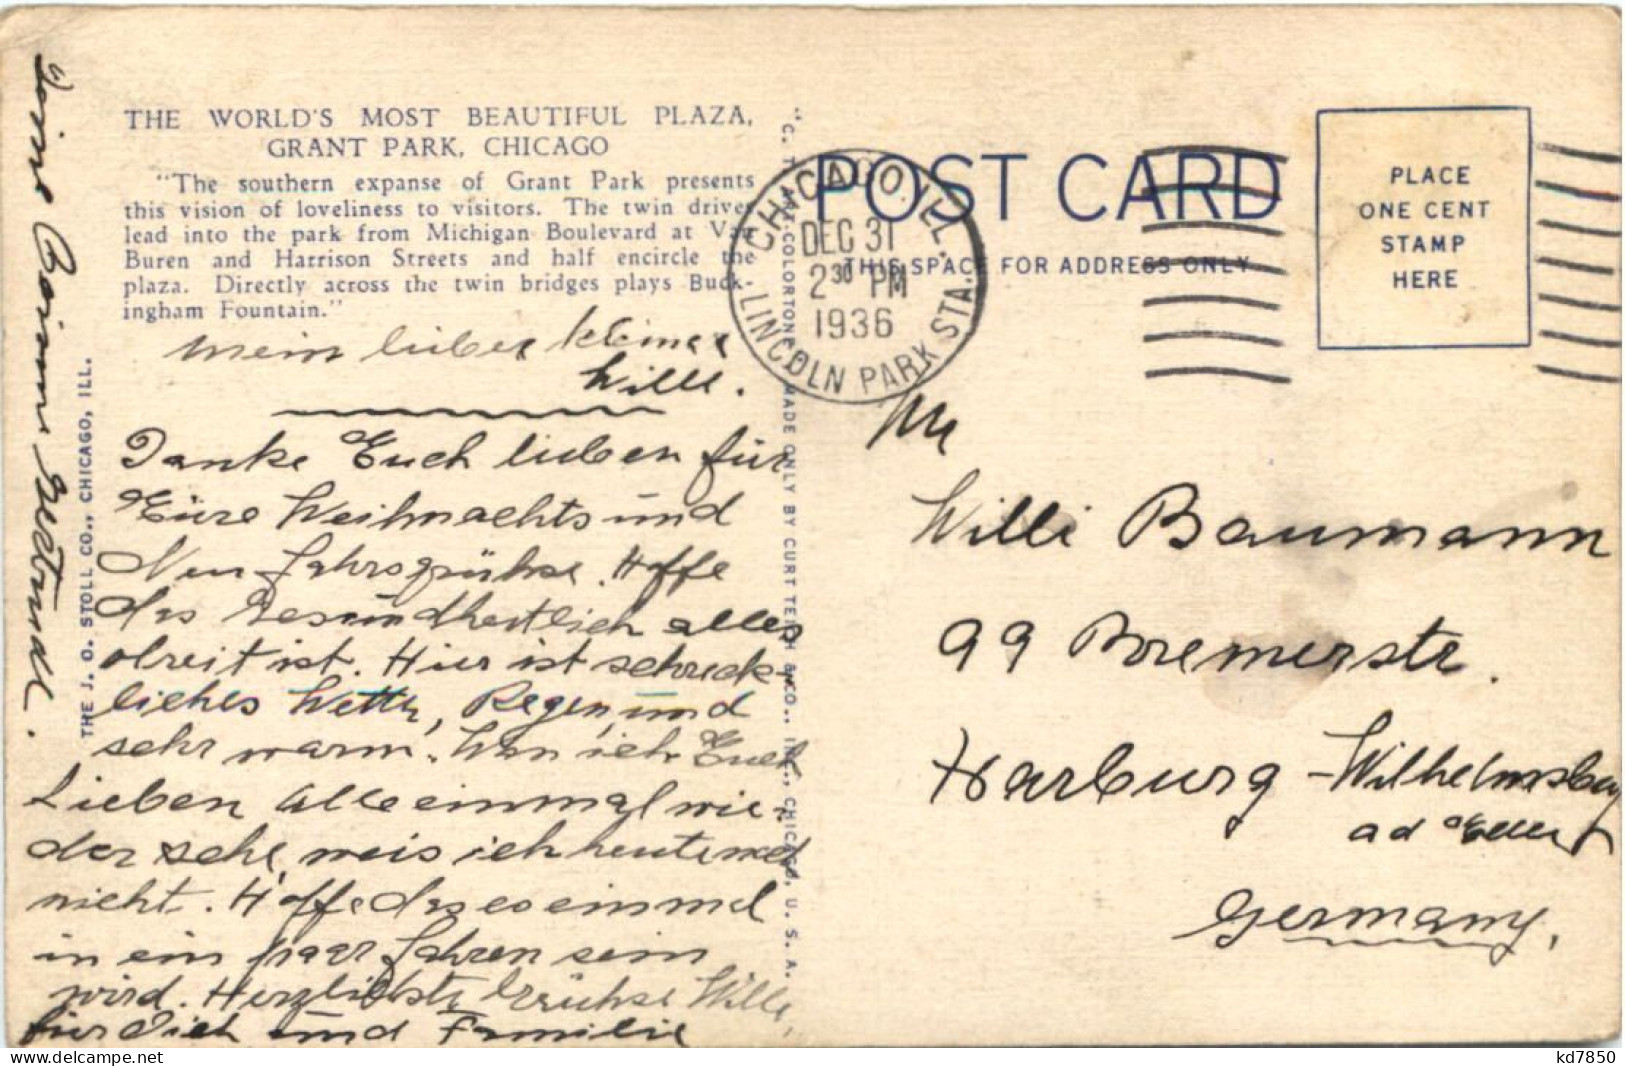 THE WORLD'S MOST BEAUTIFUL PLAZA,
GRANT PARK, CHICAGO
"The southern expanse of Grant Park presents
this vision of loveliness to visitors. The twin drives
lead into the park from Michigan Boulevard at Van
Buren and Harrison Streets and half encircle the
plaza. Directly across the twin bridges plays Buck-
ingham Fountain."
mein lieber kleiner
Willi.
Danke Euch lieben für
Eure Weihnachts und
Neu Jahrsgrühse. Hoffe
das Gesundheitlich alles
Hier ist schreck-
liches Wetter, Regen, und
sehr warm. Wan ich Euch
Lieben Alle einmal wie-
der sehe, weis ich heute noch
nicht. Hoffe das es einmal
in ein paar Jahren sein
wird. Herzlichste Grühse Willi,
für Dich und Familie
Deine Gertrud.
THE J. O. STOLL CO., CHICAGO, ILL.
"C. T. ART-COLORTONE" MADE ONLY BY CURT TEICH & CO., INC., CHICAGO, U. S. A.
POST CARD
THIS SPACE FOR ADDRESS ONLY
CHICAGO, ILL.
DEC 31
2 30 PM
1936
LINCOLN PARK STA.
PLACE
ONE CENT
STAMP
HERE
Mr
Willi Baumann
99 Bremerstr.
Harburg-Wilhelmsburg
a d
Germany,
kd7850